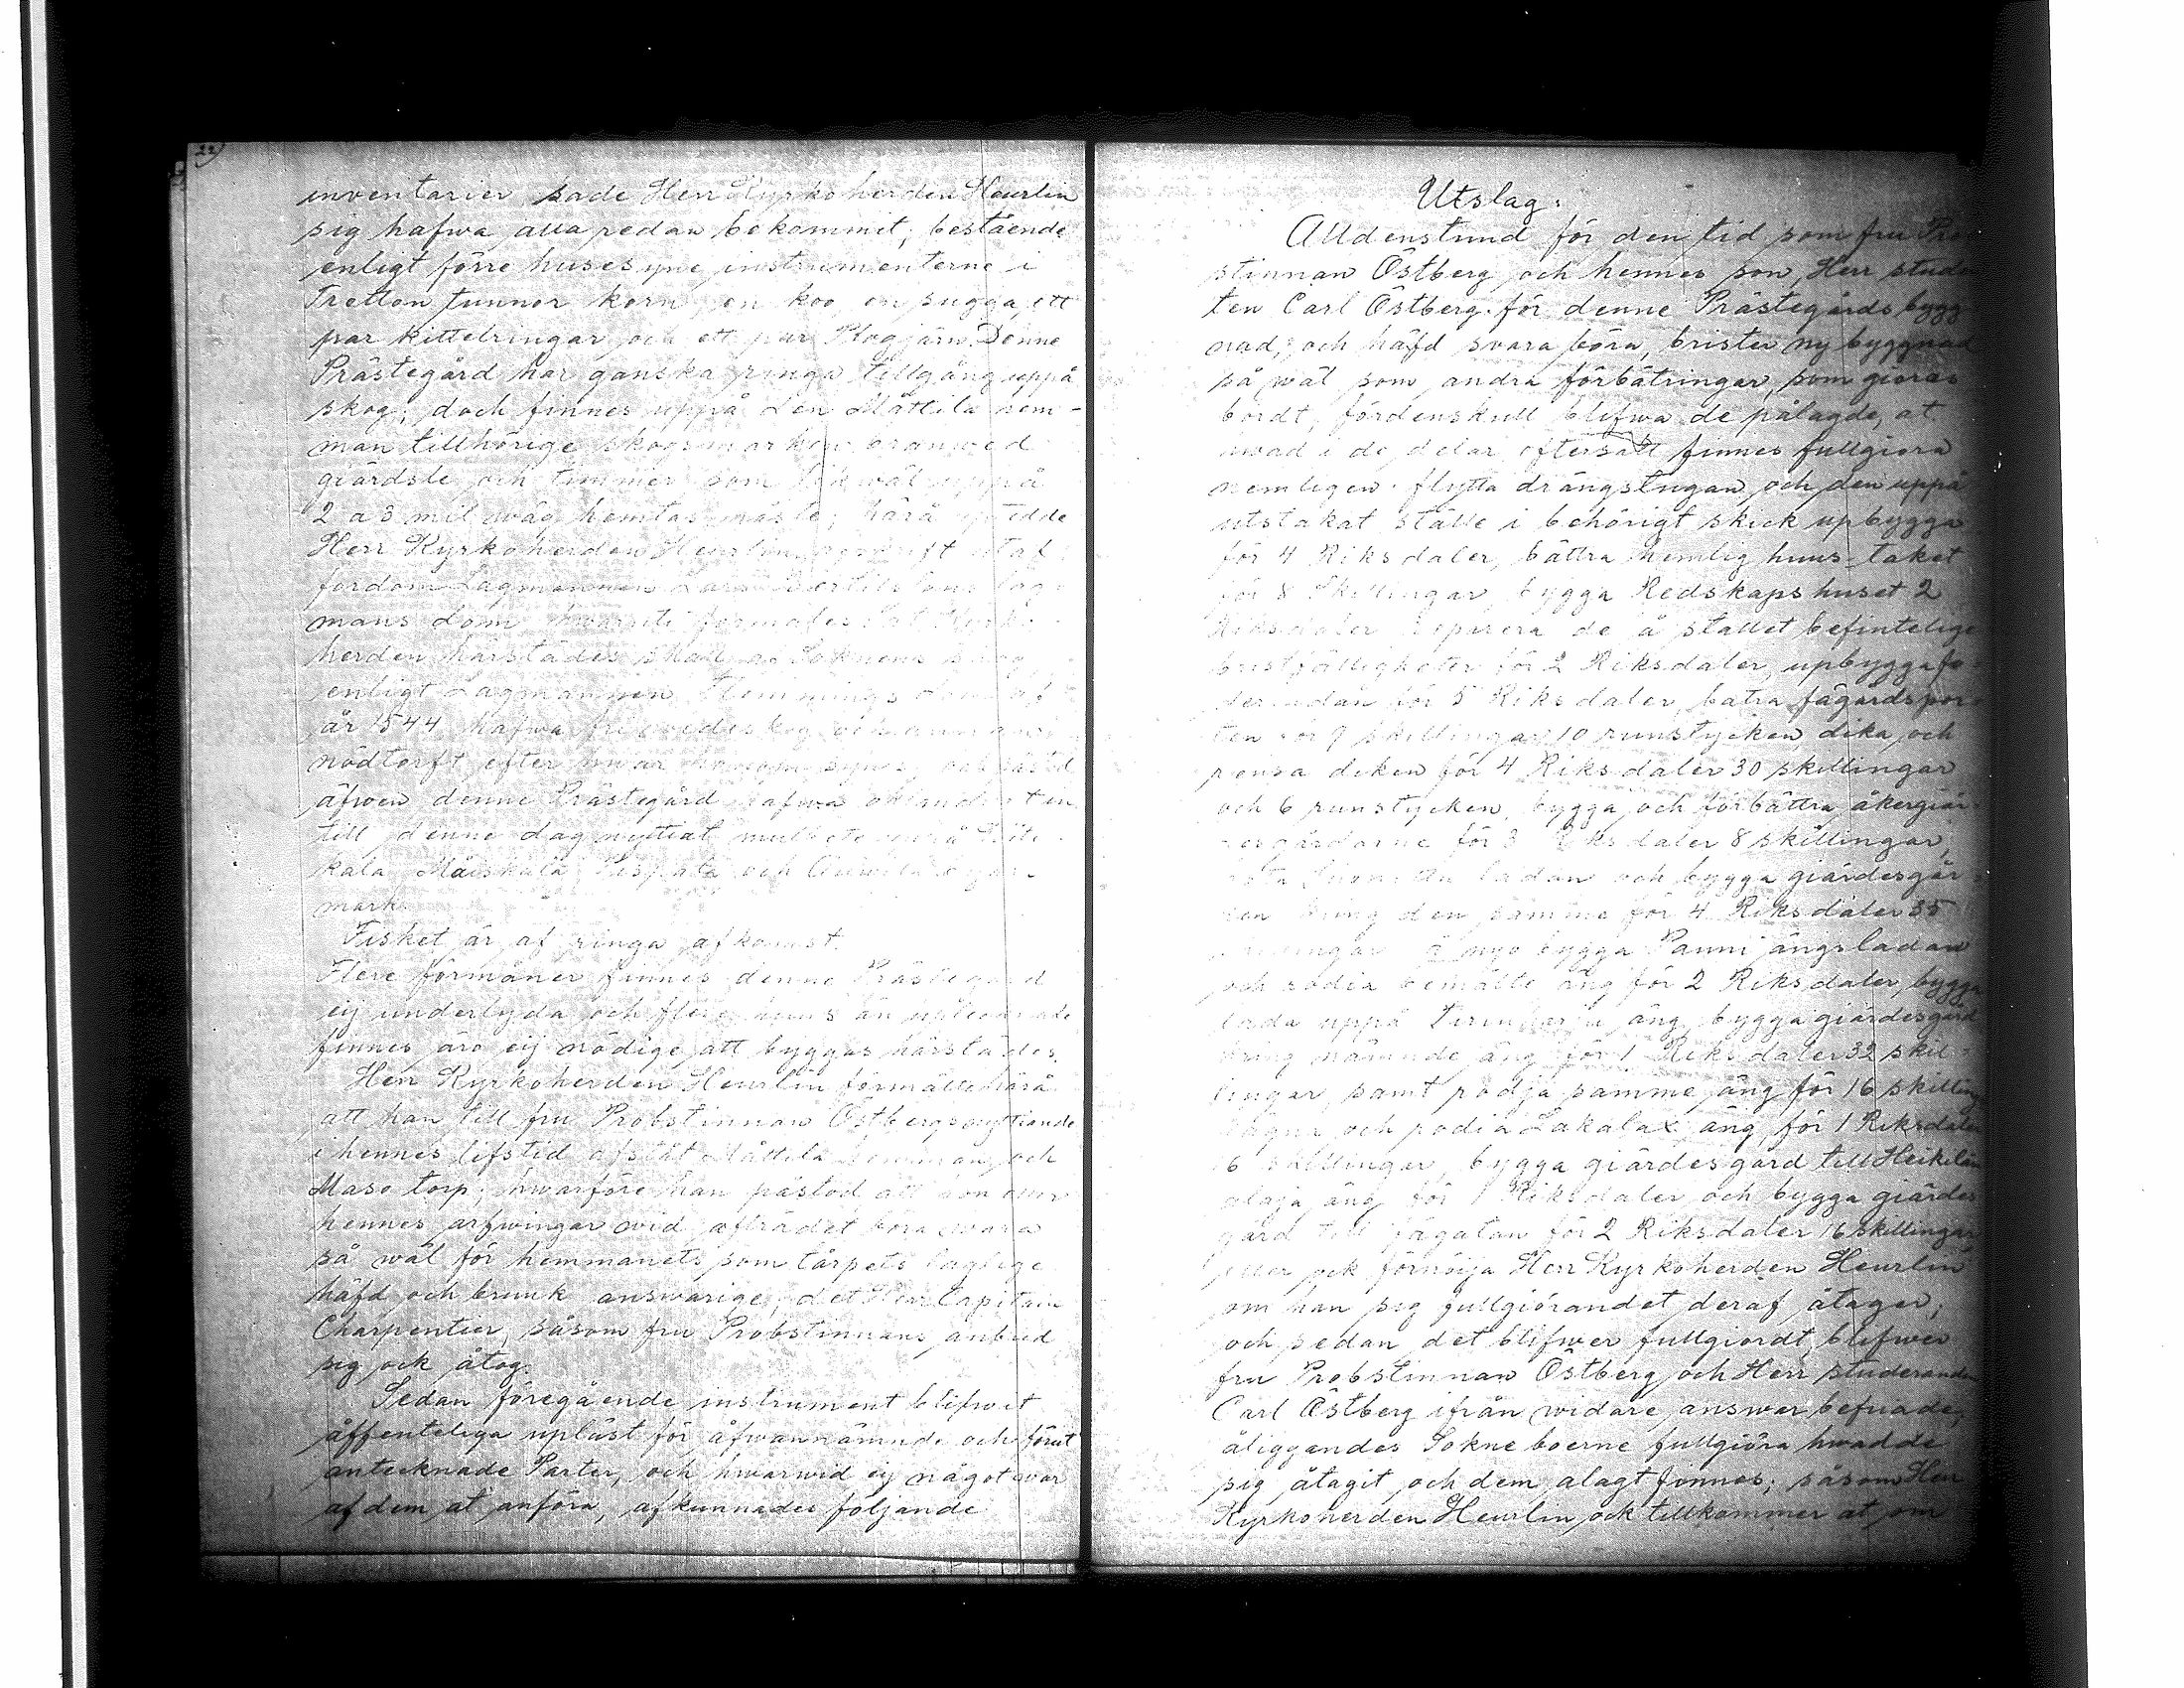 22
inventarier sade Herr Kyrkoherden Heurlin
sig hafwa alla redan bekommit, bestående
enligt förre husesyns instrumenterne i
Tretton tunnor korn, en koo en sugga, ett
par kittelringar och ett par Plogjärn. Denne
Prästegård har ganska ringa tillgång uppå
skog; doch finnes uppå den Mättilä hem-
man tillhörige skogsmarken bränwed
giärdsle och timmer som likwäl uppå
2 a 3 mil wäg hemtas måste; härå tedde
Herr Kyrkoherden Heurlin afskrift utaf
fordom Lagmannen Lars lag-
mans dom hwaruti förmäles at Kyrko-
herden härstädes skall å Soknens skog
enligt Lagmannen Flemmings dom af
år 1544 hafwa fri wedeskog och annan
nödtorft efter
äfwen denne Prästegård hafwa oklandrat in
till denne dag nyttiat mulbete uppå
kala, Maiskala, och
mark.
Fisket är af ringa afkomst.
Flere förmåner finnes denne Prästegård
eij underlyda och flere huus än upteknade
finnes äro eij nödige att byggas härstädes.
Herr Kyrkoherden Heurlin förmälte härå
att han till fru Probstinnan Östbergs nyttiande
i hennes lifstid afståt Mättilä hemman och
Maso torp, hwarföre han påstod att hon eller
hennes arfwingar wid afträdet böra wara
så wäl för hemmanets som tårpets laglige
häfd och bruuk answarige; det Herr Capitain
Charpentier, såsom fru Probstinnans anbud
sig ock åtog.
Sedan föregående instrument blifwit
åffenteliga upläst för åfwannämnde och förut
antecknade Parter, och hwarwid eij något war
af dem at anföra, afkunnades följande
Utslag:
Alldenstund för den tid som fru Pro
stinnan Östberg och hennes son, Herr stude
ten Carl Östberg för denne Prästegårds bygg
nad, och häfd svara böra, brister ny byggnad
så wäl som andra förbätringar, som giöras
bordt, fördenskull blifwa de pålagde, at
hwad i de delar eftersatt finnes fullgiöra
nemligen flytta drängstugan och den uppå
utstakat ställe i behörigt skick upbygga
för 4 Riksdaler, bättra hemlig huus taket
för 8 Skillingar, bygga Redskapshuset 2
Riksdaler reparera de å stallet befintelige
bristfälligheter för 2 Riksdaler, upbygga fo
derladan för 5 Riksdaler, bätra fägårdspor
ten för 9 skillingar 10 runstycken, dika och
rensa diken för 4 Riksdaler 30 skillingar
och 6 runstycken, bygga och förbättra åkergiär
desgårdarne för 3 Riksdaler 8 skillingar,
ladan och bygga giärdesgår
den kring den samma för 4 Riksdaler 35
skillingar å nyo bygga Panni ängsladan
och rödia bemälte äng för 2 Riksdaler, bygga
lada uppå äng, bygga giärdesgård
kring nämnde äng för 1 Riksdaler 32 skil
lingar samt rödja samme äng för 16 skilling
hägna och rödia Lakalax äng för 1 Riksdaler
6 skillingar, bygga giärdesgård till Heikilän
alaja äng för 1 Riksdaler och bygga giärdes
gård till fägatan för 2 Riksdaler 16 skillingar
eller ock förnöija Herr Kyrkoherden Heurlin
om han sig fullgiörandet deraf åtager;
och sedan det blifwer fullgiordt, blifwer
fru Probstinnan Östberg och Herr studeranden
Carl Östberg ifrån widare answar befriade,
åliggandes Sokneboerne fullgiöra hwad de
sig åtagit och dem ålagt finnes; såsom Herr
Kyrkoherden Heurlin ock tillkommer at om